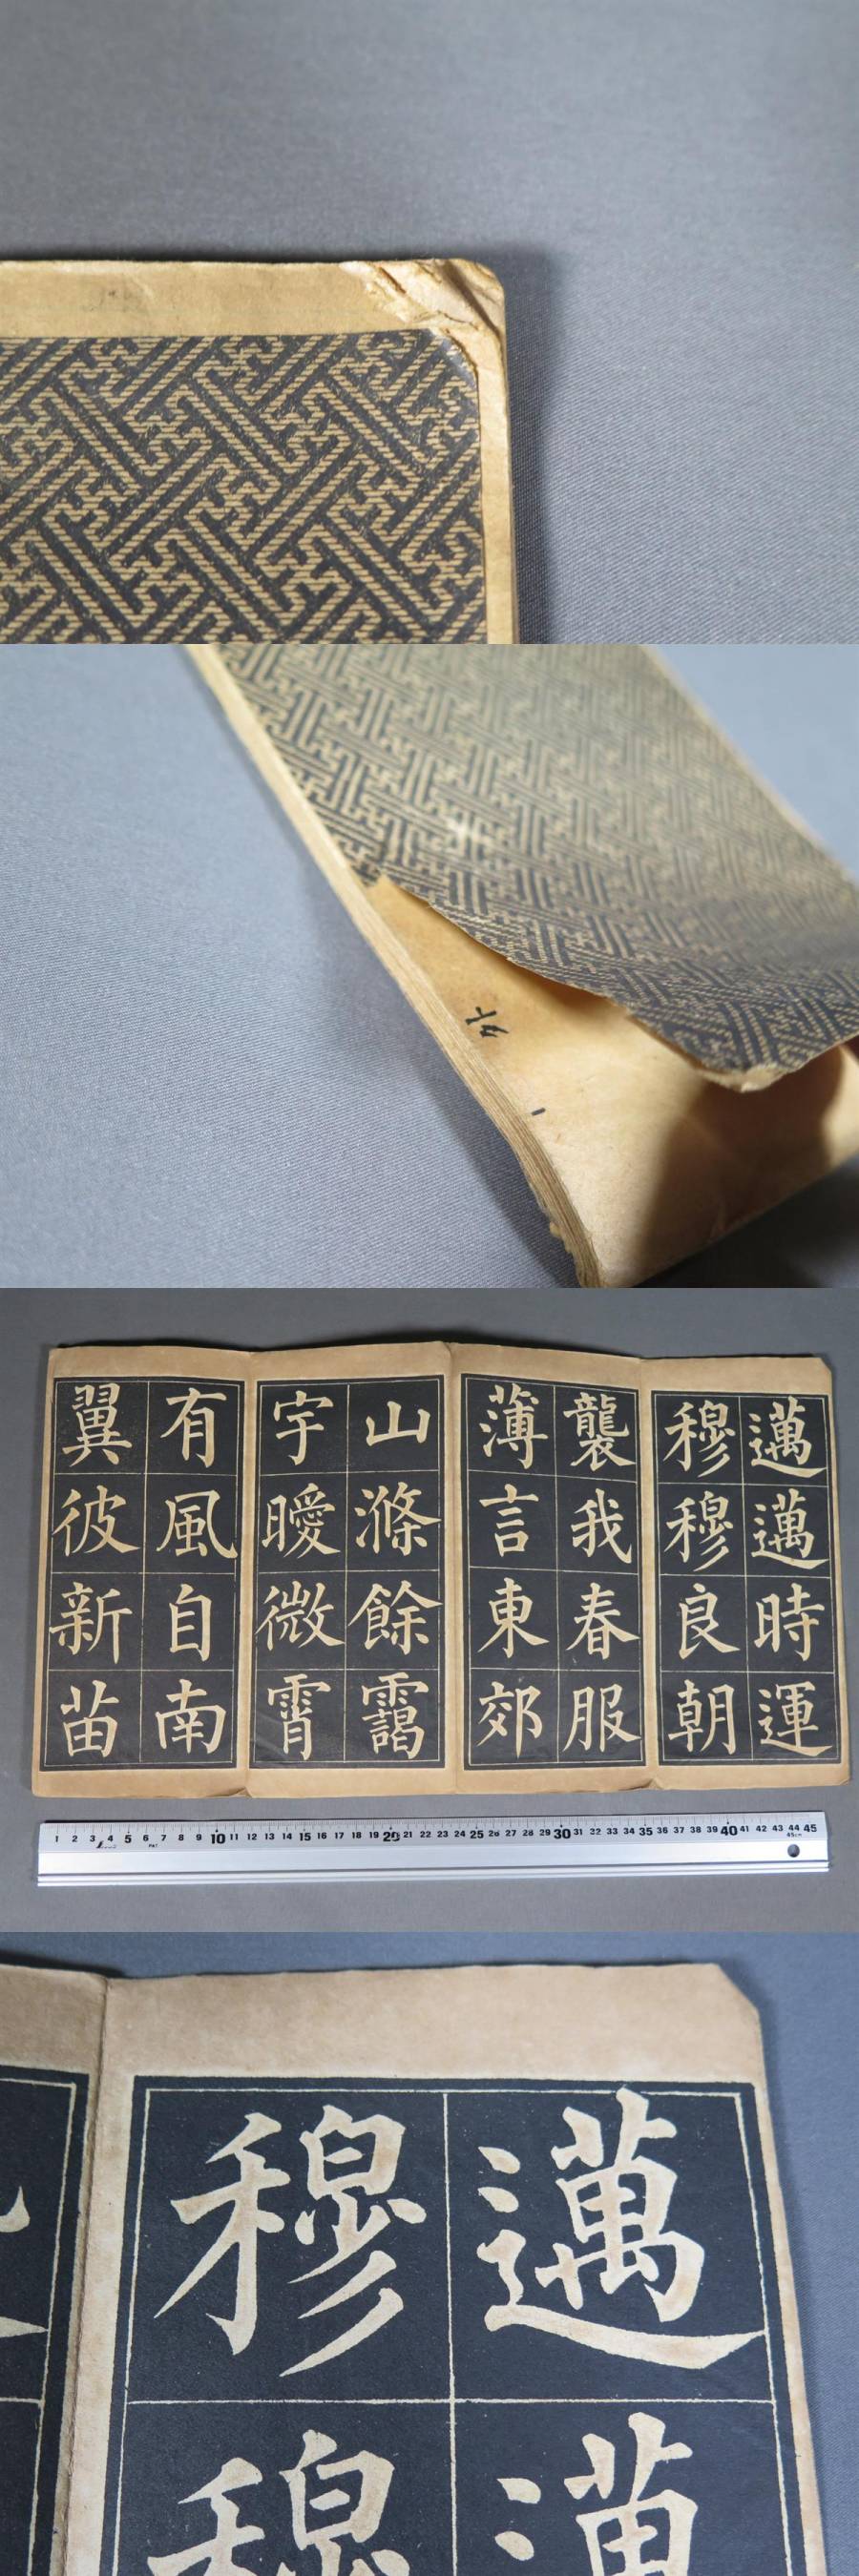 外
一
邁邁時運
穆穆良朝
襲我春服
薄言東郊
山滌餘靄
宇曖微霄
有風自南
翼彼新苗
1 2 3 4 5 6 7 8 9 10 11 12 13 14 15 16 17 18 19 20 21 22 23 24 25 26 27 28 29 30 31 32 33 34 35 36 37 38 39 40 41 42 43 44 45
45cm
邁邁
穆穆